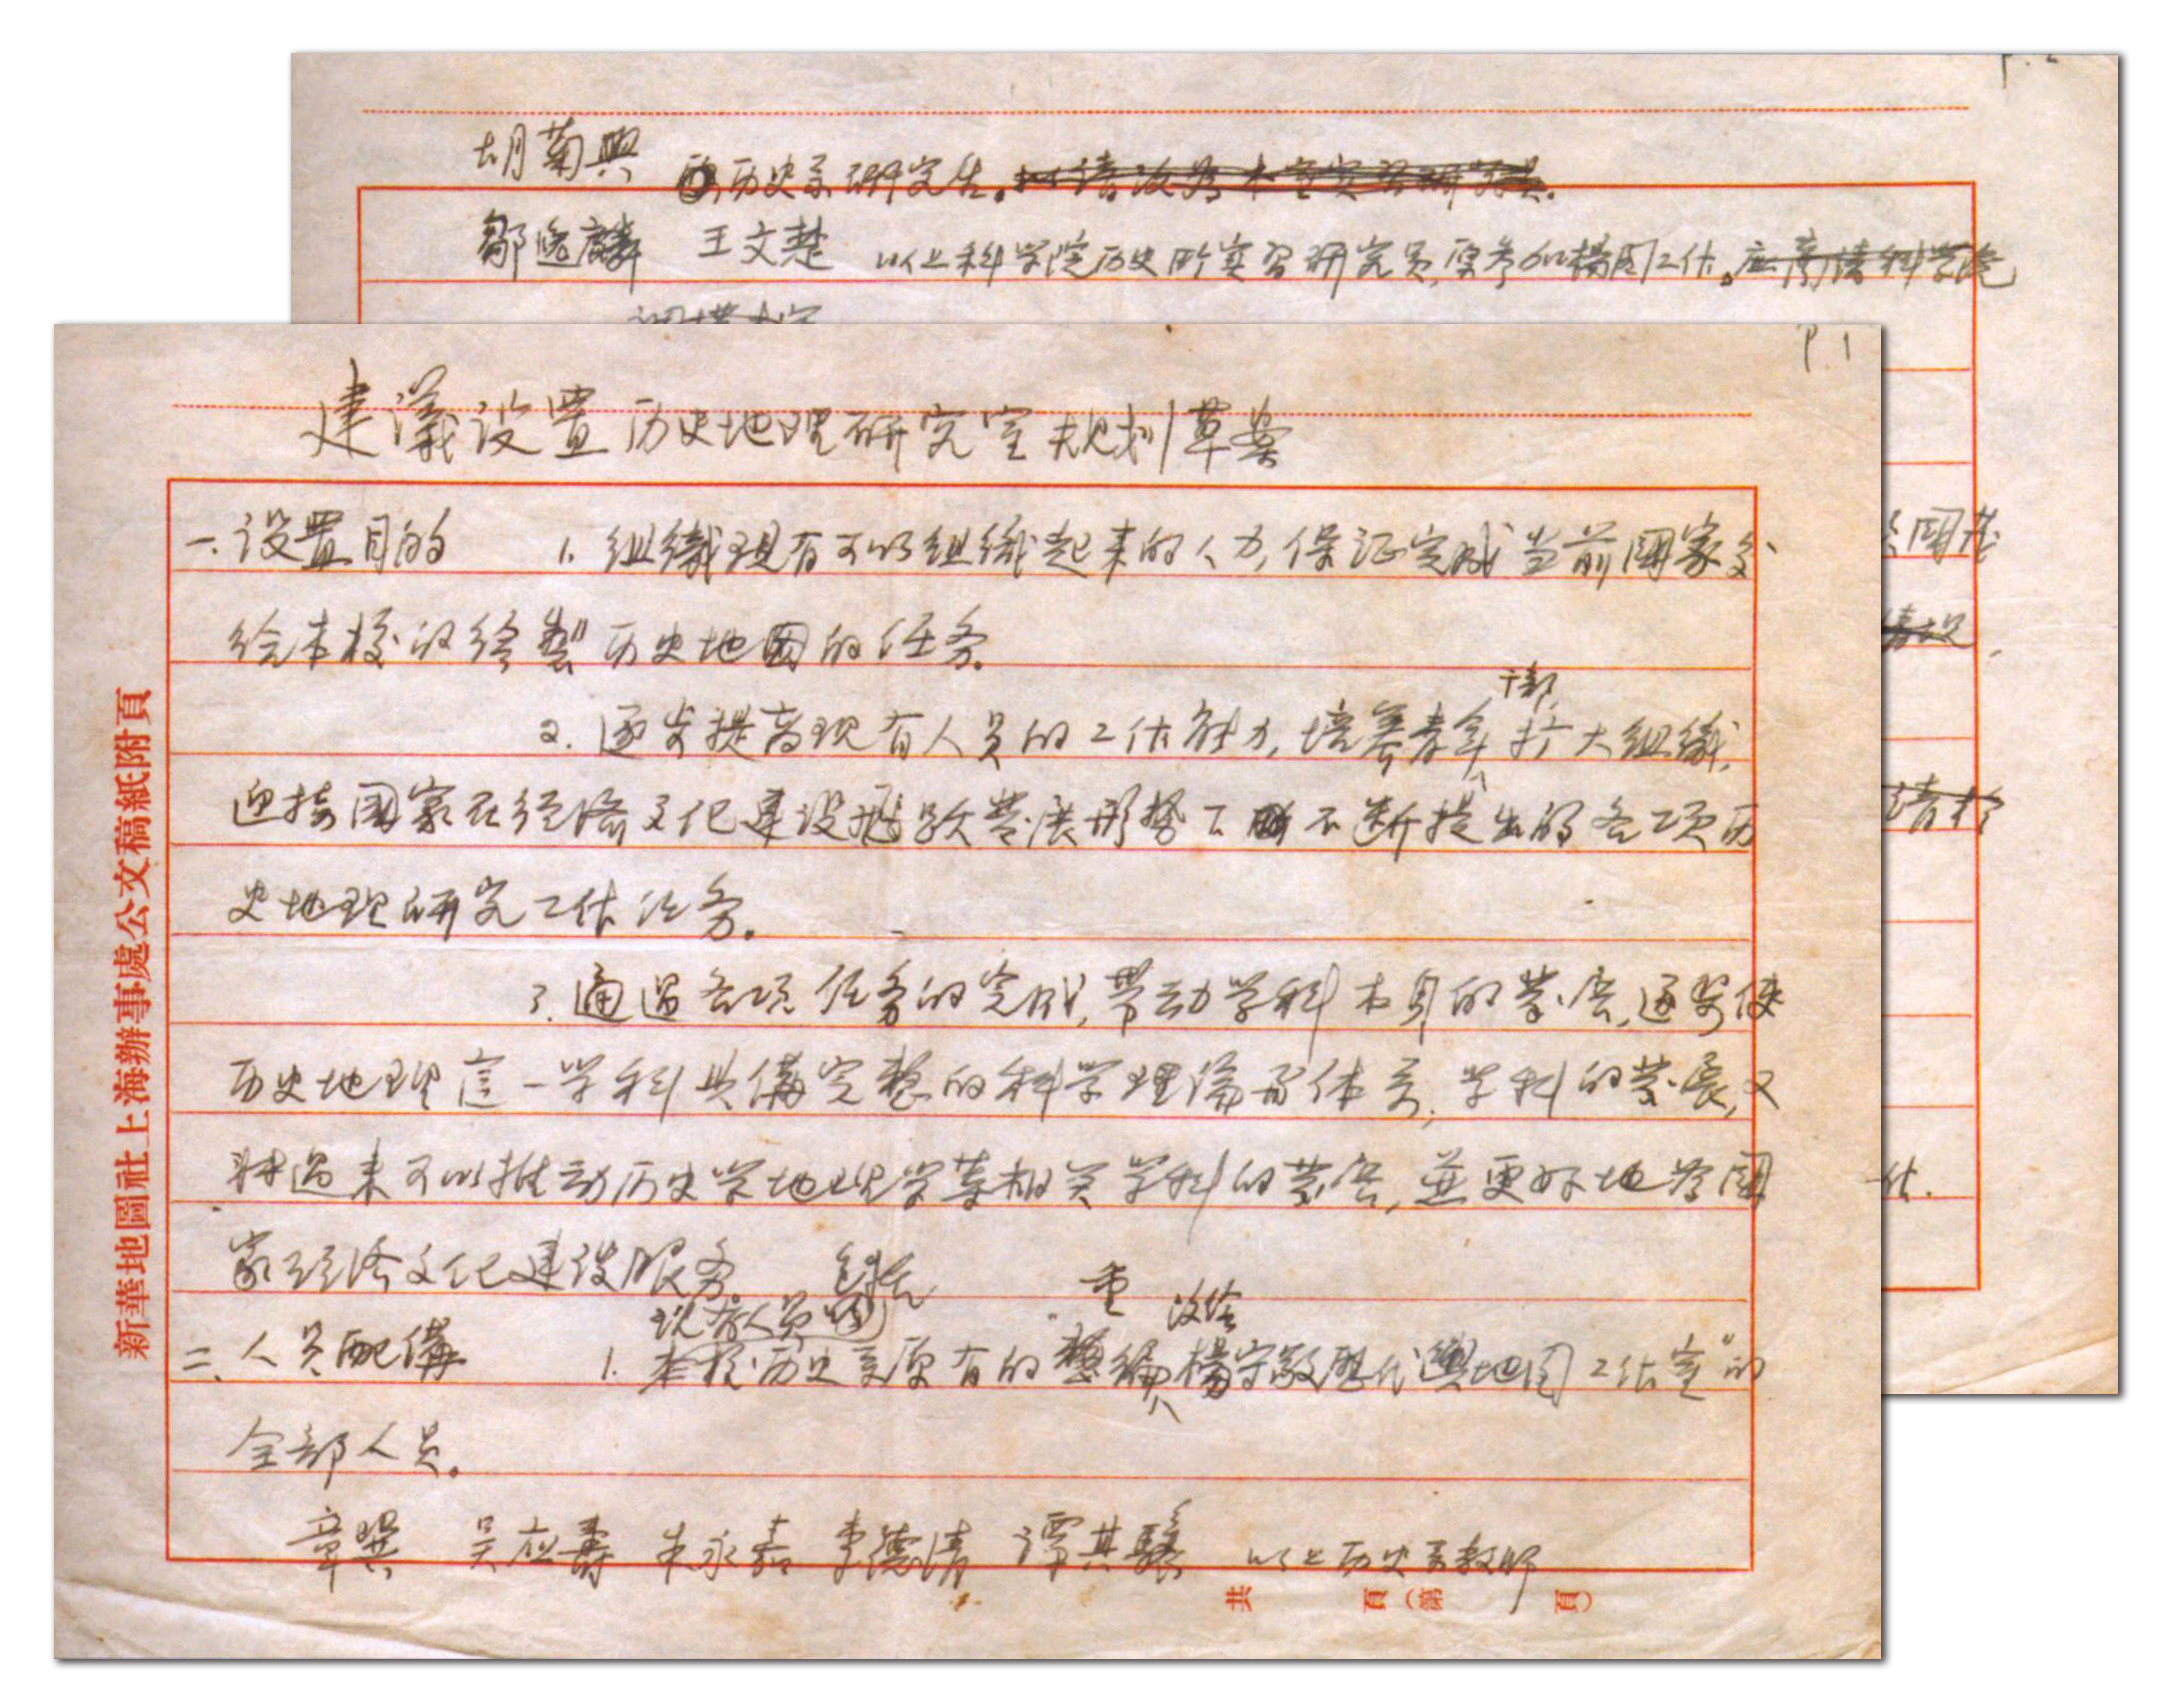 P. 2
胡菊興
历史系研究生。拟请改为本室实习研究员。
鄒逸麟 王文楚 以上科学院历史所实习研究员,原参加楊图工作。应商请科学院
P 1
建議设置历史地理研究室规划草案
一、设置目的 1. 組織现有可以組織起来的人力,保证完成当前國家交
给本校的绘製历史地图的任务。
干部
2. 逐步提高现有人员的工作能力,培养青年扩大組織,
迎接國家在经济文化建设飛跃發展形势下不断提出的各项历
史地理研究工作任务。
3. 通過各项任务的完成,带动学科本身的發展,逐步使
历史地理這一学科具備完整的科学理論和体系,学科的發展,又
转過来可以推动历史学地理学等相关学科的發展,並更好地为國
家经济文化建设服务。 包括
现有人员 重 改绘
二、人员配備 1. 本校历史系原有的 編楊守敬歷代輿地图工作室"的
全部人员。
章巽 吴应壽 朱永嘉 李德清 譚其驤 以上历史系教师
共 頁(第 頁)
新華地圖社上海辦事處公文稿紙附頁